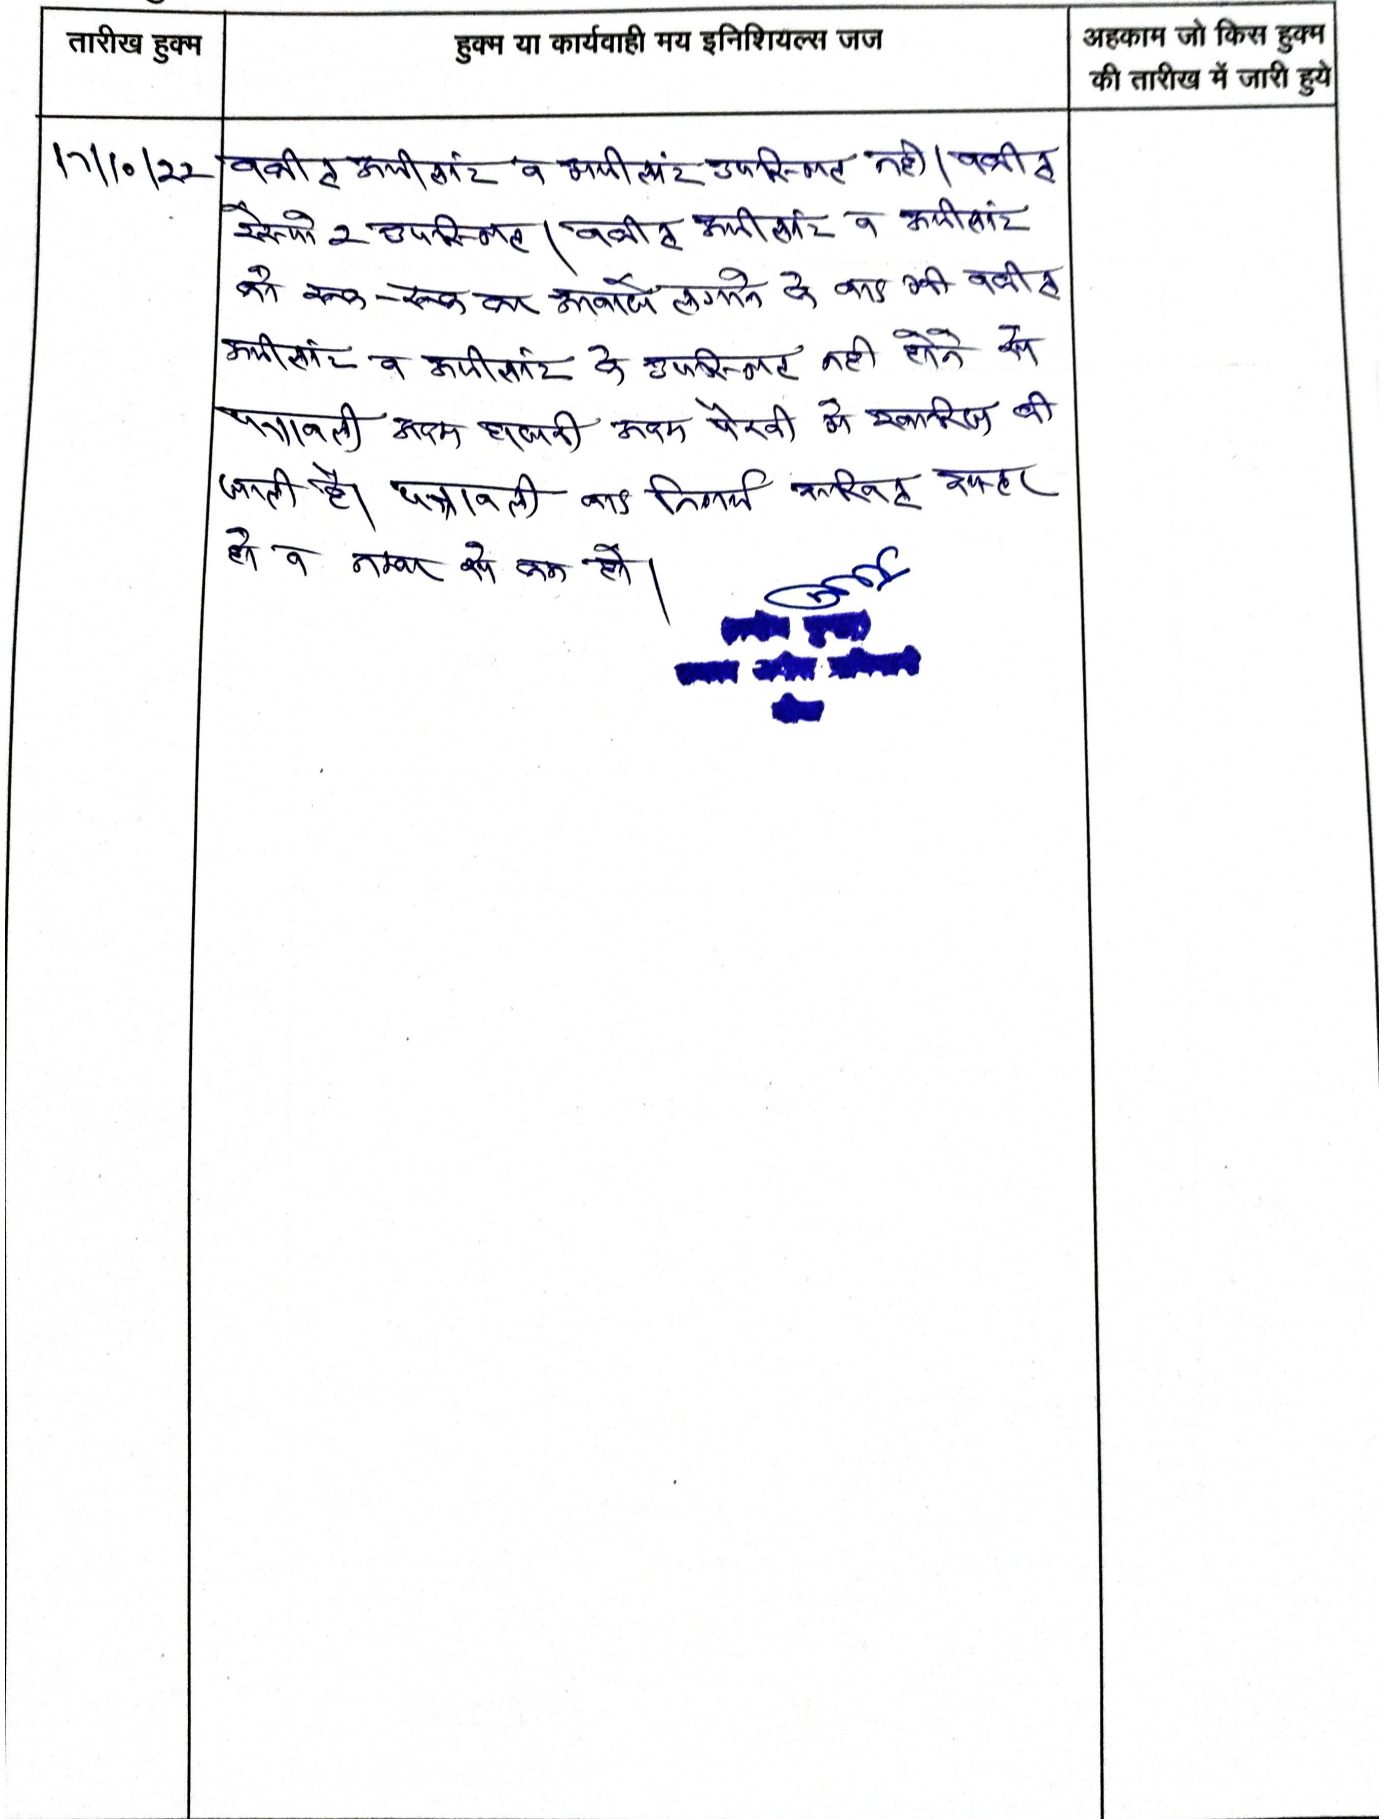 तारीख हुक्म
हुक्म या कार्यवाही मय इनिशियल्स जज
अहकाम जो किस हुक्म
की तारीख में जारी हुये
17/10/22
वकील अपीलांट व अपीलांट उपस्थित नही। वकील
रेस्पो 2 उपस्थित। वकील अपीलांट व अपीलांट
को रूक-रूक कर आवाजे लगाने के बाद भी वकील
अपीलांट व अपीलांट के उपस्थित नही होने से
पत्रावली अदम हाजरी अदम पैरवी मे खारिज की
जाती है। पत्रावली बाद निर्णय दाखिल दफ्तर
हो व नम्बर से कम हो।